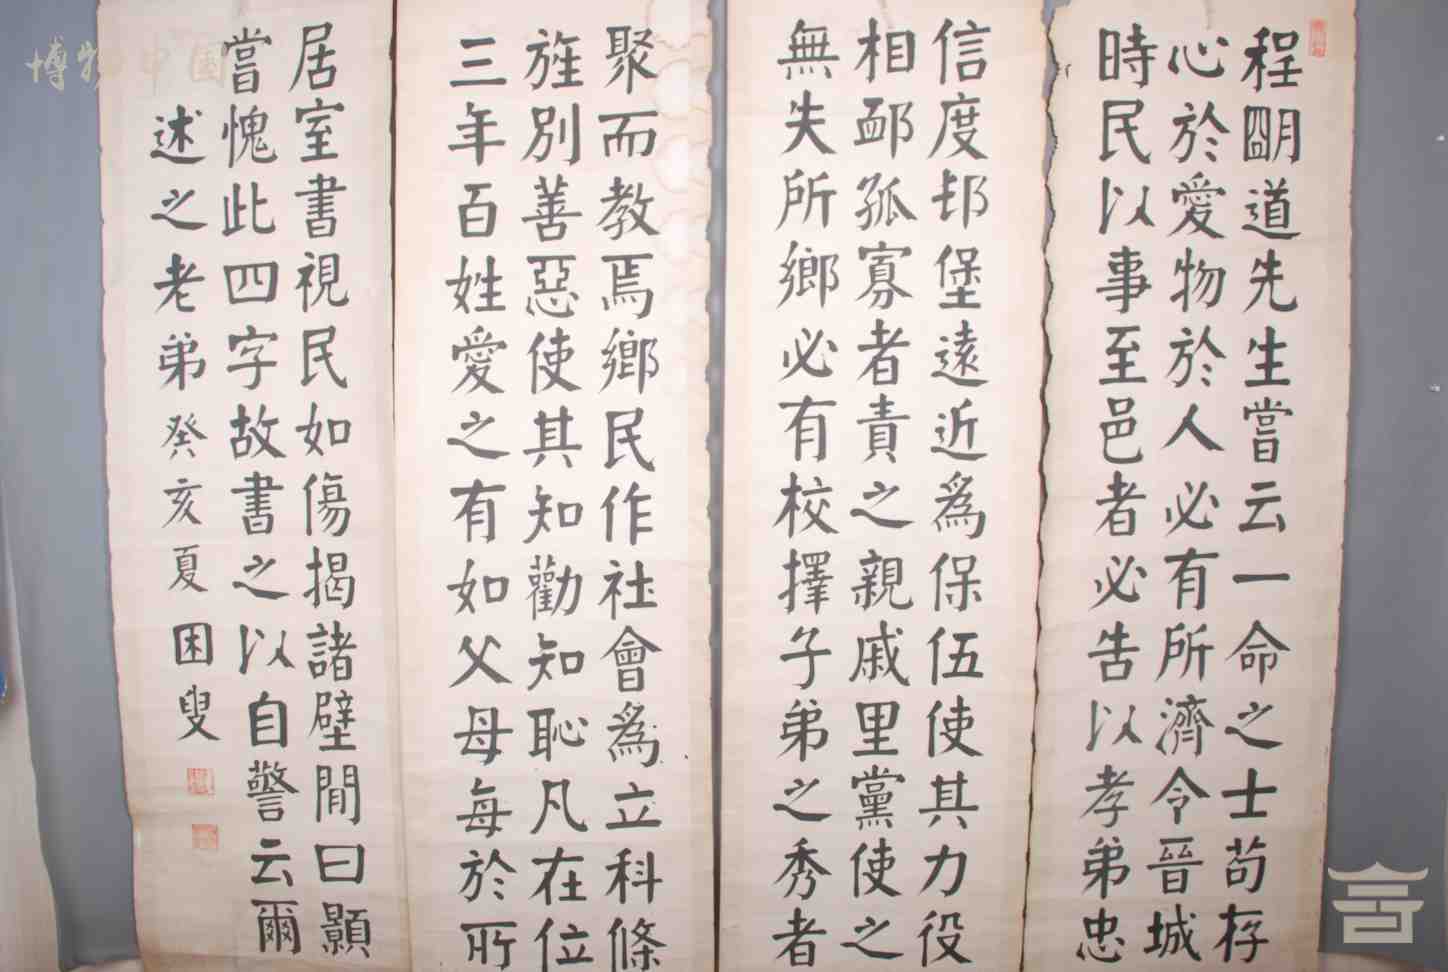 程明道先生嘗云一命之士苟存
心於愛物於人必有所濟令晉城
時民以事至邑者必告以孝弟忠
信度邨堡遠近為保伍使其力役
相䘏孤寡者責之親戚里黨使之
無失所鄉必有校擇子弟之秀者
聚而教焉鄉民作社會為立科條
旌別善惡使其知勸知恥凡在位
三年百姓愛之有如父母每於所
居室書視民如傷揭諸壁閒曰顥
嘗愧此四字故書之以自警云爾
述之老弟 癸亥夏 困叟
博物中国